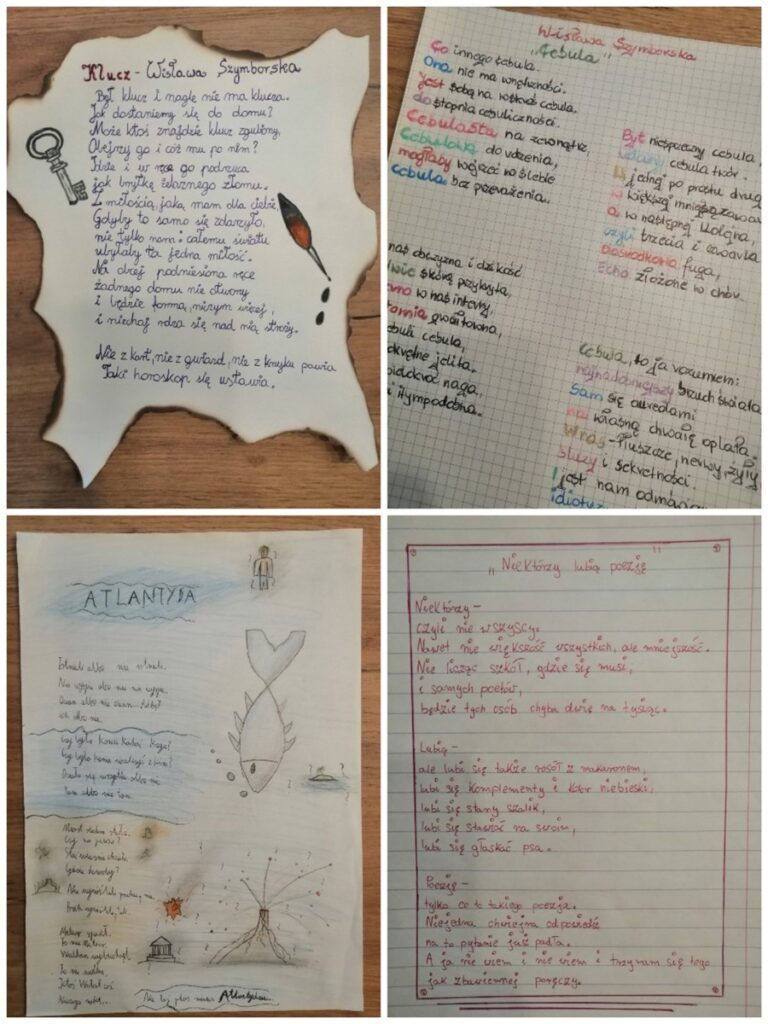 Klucz - Wisława Szymborska
Był klucz i nagle nie ma klucza.
Jak dostaniemy się do domu?
Może ktoś znajdzie klucz zgubiony,
Obejrzy go i cóż mu po nim?
Idzie i w ręce go podrzuca
jak bryłkę żelaznego złomu.
Z miłością, jaką mam dla ciebie,
Gdyby to samo się zdarzyło,
nie tylko nam: całemu światu
ubyłaby ta jedna miłość.
Na obcej podniesiona ręce
żadnego domu nie otworzy
i będzie formą, niczym więcej,
i niechaj rdza się nad nią sroży.
Nie z kart, nie z gwiazd, nie z krzyku pawia
Taki horoskop się ustawia.
Wisława Szymborska
"Cebula"
Co innego cebula.
Ona nie ma wnętrzności.
Jest sobą na wskroś cebula,
do stopnia cebuliczności.
Cebulasta na zewnątrz,
Cebulowa do rdzenia,
mogłaby wejrzeć w siebie
cebula bez przerażenia.
Byt niesprzeczny cebula,
udany cebula twór.
W jednej po prostu druga
w większej mniejsza zawarta
a w następnej kolejna,
czyli trzecia i czwarta
Dośrodkowa fuga,
Echo złożone w chór.
nas obczyzna i dzikość
skórą przykryta,
w nas interny,
gwałtowna,
cebula,
jelita.
naga,
i itympodobna.
Cebula, to ja rozumiem:
najnadobniejszy brzuch świata
Sam się aureolami
na własną chwałę oplata.
W nas - tłuszcze, nerwy, żyły
śluzy i sekretności.
I jest nam odmówiony
ATLANTYDA
Istnieli albo nie istnieli.
Na wyspie albo nie na wyspie.
Ocean albo nie ocean
ich albo nie.
Czy było kogo kochać kogo?
Czy było komu walczyć z kim?
Działo się wszystko albo nic
Tam albo nie tam.
Miast siedem stało.
Czy na pewno?
Stać wiecznie chciało.
Gdzie dowody?
Nie wymyślili prochu, nie.
Proch wymyślili, tak.
Na tej plus minus Atlantydzie.
"Niektórzy lubią poezję"
Niektórzy -
czyli nie wszyscy.
Nawet nie większość wszystkich, ale mniejszość.
Nie licząc szkół, gdzie się musi,
i samych poetów,
będzie tych osób chyba dwie na tysiąc.
Lubią -
ale lubi się także rosół z makaronem,
lubi się komplementy i kolor niebieski,
lubi się stary szalik,
lubi się stawiać na swoim,
lubi się głaskać psa.
Poezję -
tylko co to takiego poezja.
Niejedna chwiejna odpowiedź
na to pytanie już padła.
A ja nie wiem i nie wiem i trzymam się tego
jak zbawiennej poręczy.